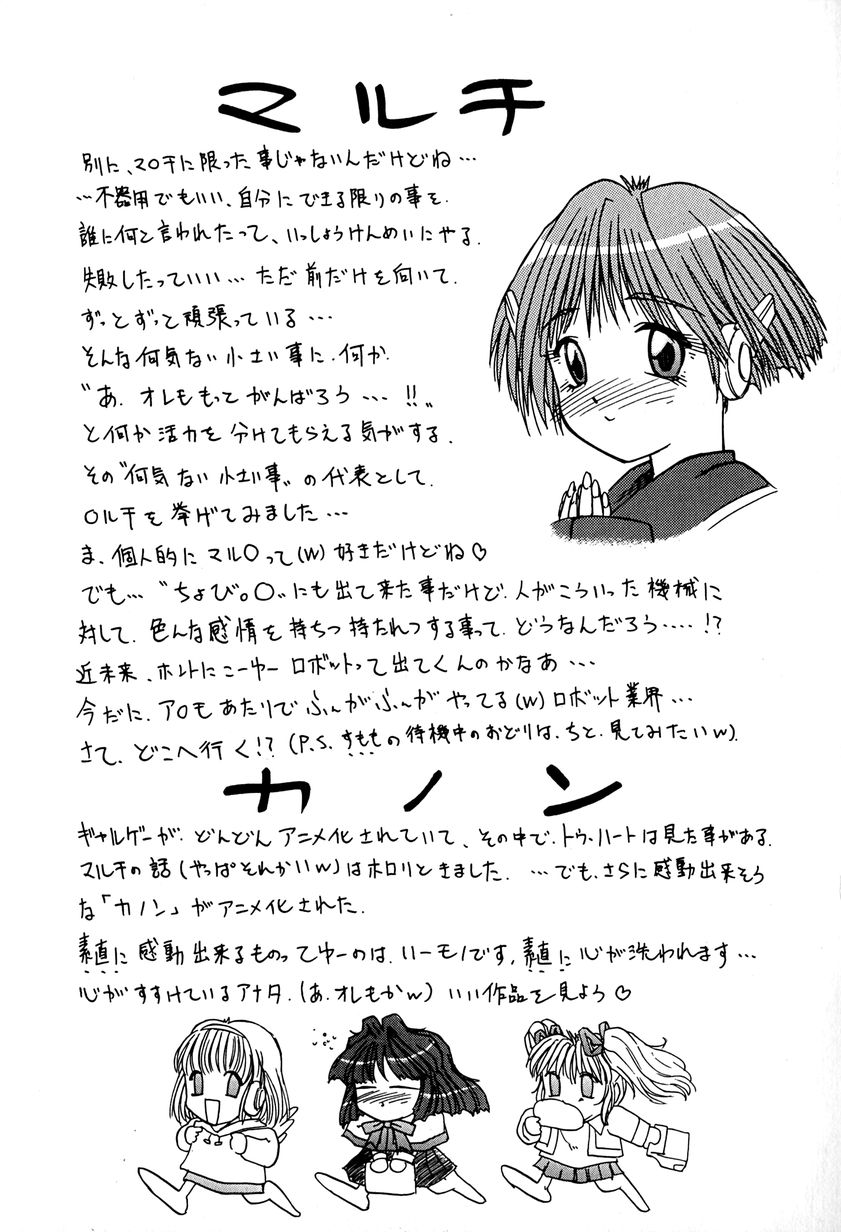 マルチ
別に、マ〇チに限った事じゃないんだけどね…
…不器用でもいい、自分にできる限りの事を、
誰に何と言われたって、いっしょうけんめいにやる。
失敗したっていい…ただ前だけを向いて、
ずっとずっと頑張っている…
そんな何気ない小さい事に、何か
〝あ、オレももっとがんばろう…!!〟
と何か活力を分けてもらえる気がする。
その〝何気ない小さい事〟の代表として、
〇ルチを挙げてみました…
ま、個人的にマル〇って(w)好きだけどね♡
でも…〝ちょび。〇〟にも出て来た事だけど、人がこういった機械に
対して、色んな感情を持ちつ持たれつする事って、どうなんだろう…!?
近未来、ホントにこーゆーロボットって出てくんのかなあ…
今だに、ア〇もあたりでふんがふんがやってる(w)ロボット業界…
さて、どこへ行く!?(P.S.すももの待機中のおどりは、ちと、見てみたいw)。
カノン
ギャルゲーが、どんどんアニメ化されていて、その中で、トゥ・ハートは見た事がある。
マルチの話(やっぱそれかいw)はホロリときました。…でも、さらに感動出来そう
な「カノン」がアニメ化された。
素直に感動出来るものってゆーのは、いーモノです、素直に心が洗われます…
心がすすけているアナタ、(あ、オレもかw)いい作品を見よう♡